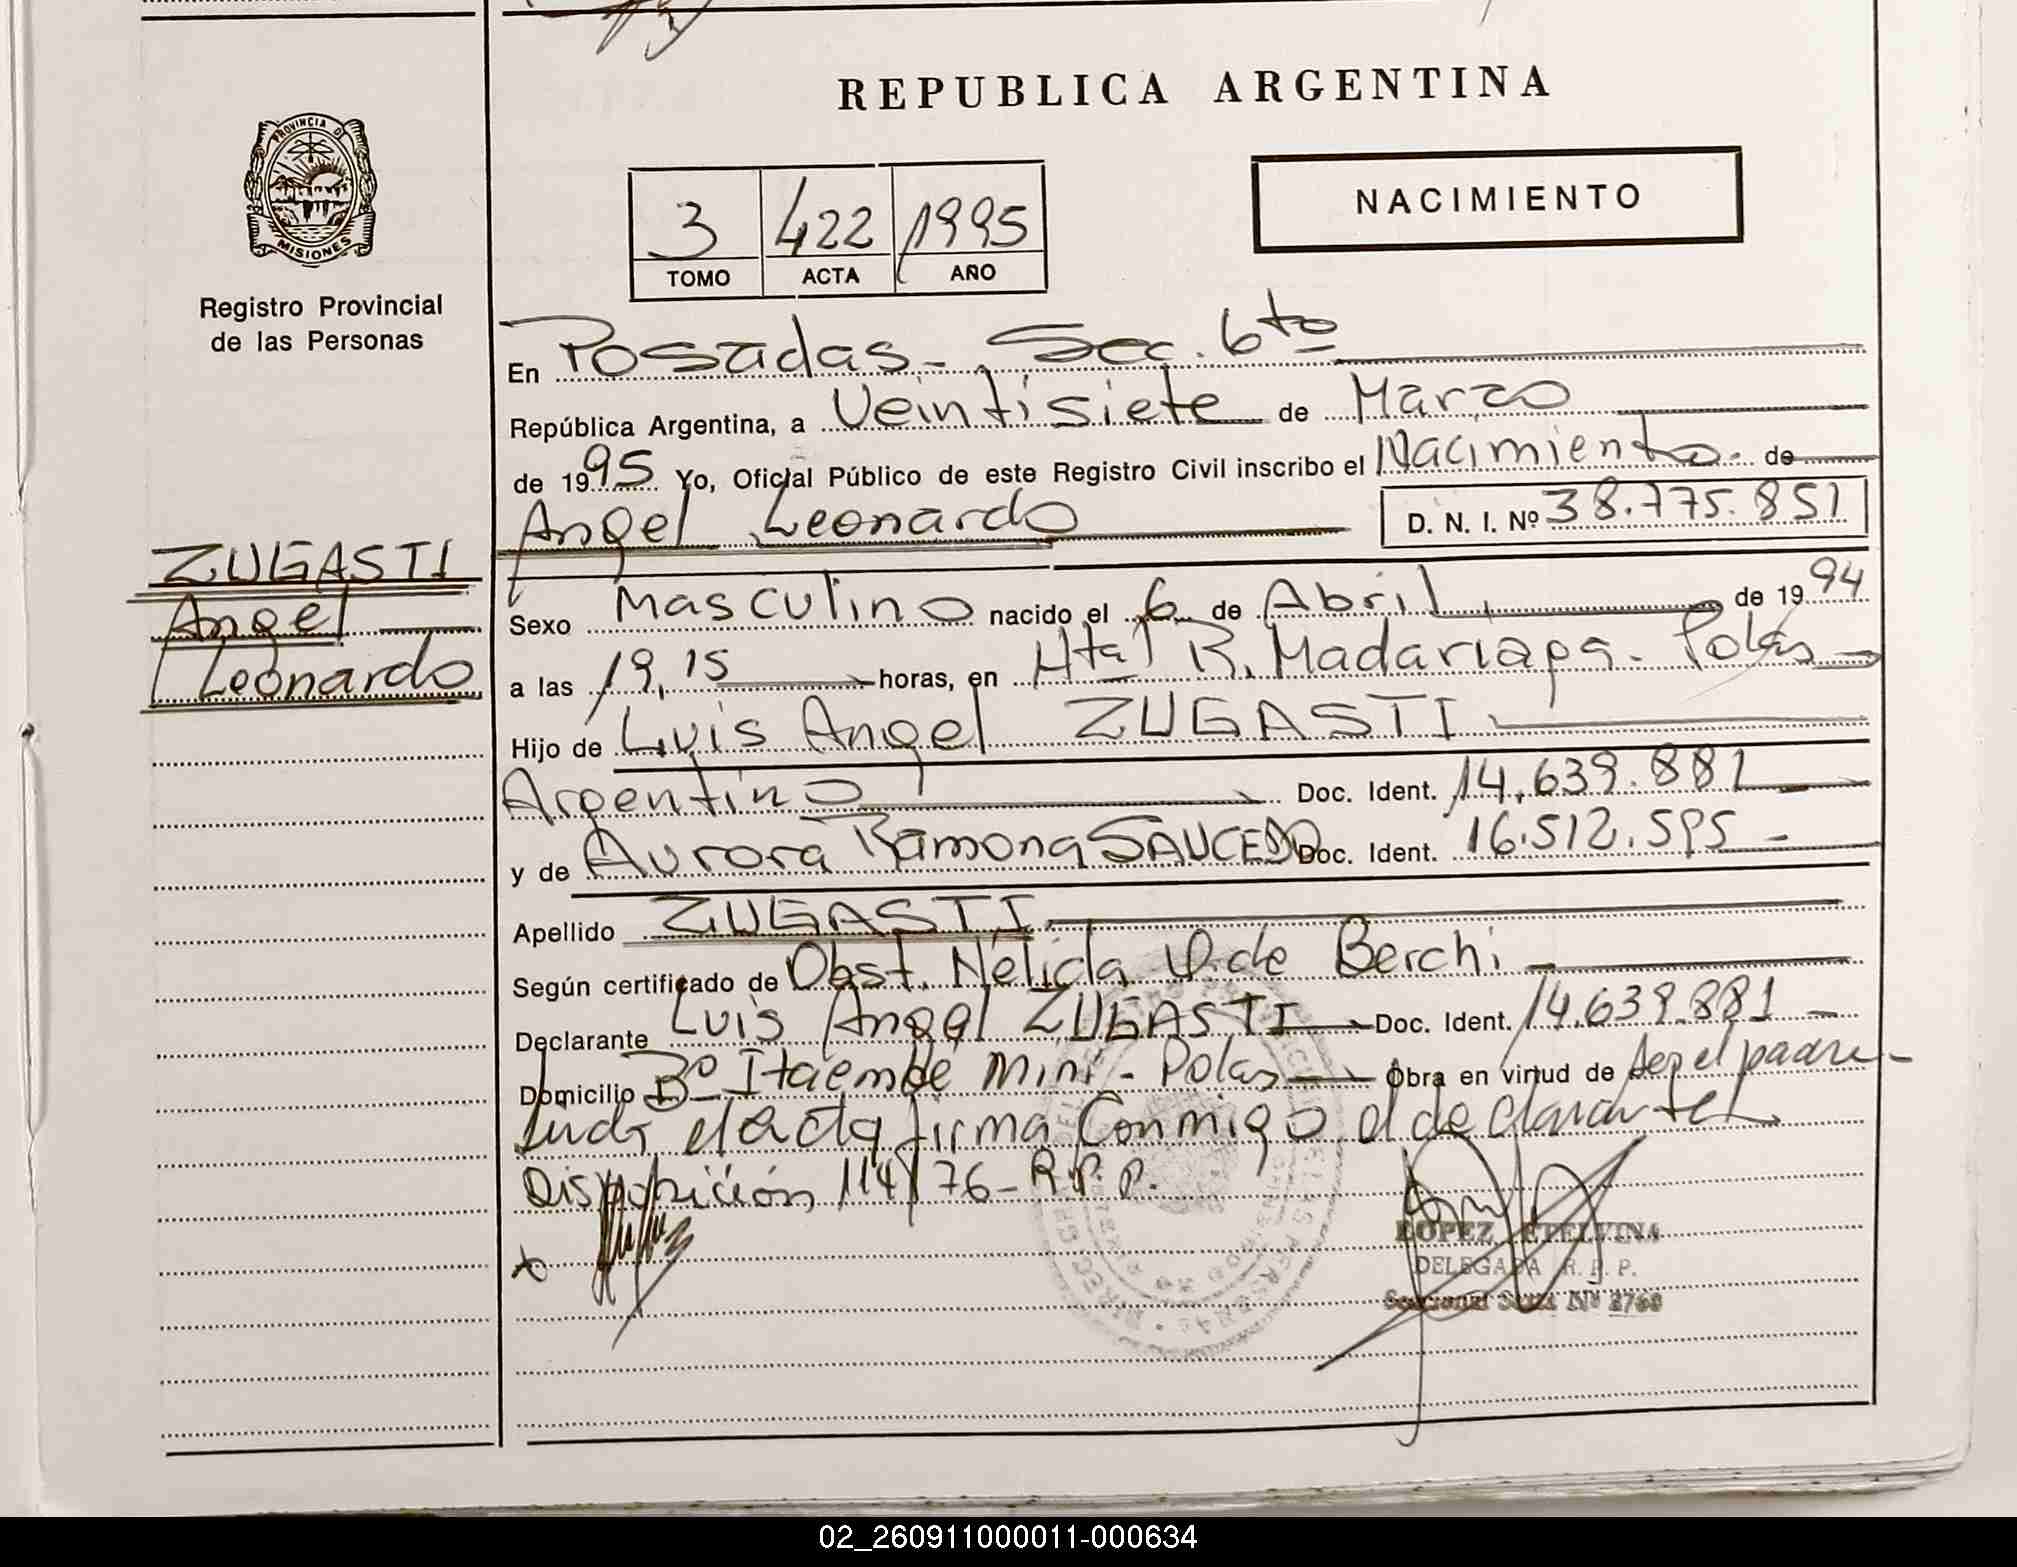 REPUBLICA ARGENTINA
PROVINCIA DE
MISIONES
Registro Provincial
de las Personas
3 422 1995
TOMO ACTA AÑO
NACIMIENTO
En Posadas - Sec. 6to
República Argentina, a Veintisiete de Marzo
de 1995 Yo, Oficial Público de este Registro Civil inscribo el Nacimiento de
Angel Leonardo D. N. I. Nº 38.775.851
ZUGASTI
Angel
Leonardo
Sexo Masculino nacido el 6 de Abril de 1994
a las 19,15 horas, en Htal R. Madariaga - Pdas
Hijo de Luis Angel ZUGASTI
Argentino Doc. Ident. 14.639.881
y de Aurora Ramona SAUCEDO Doc. Ident. 16.512.595
Apellido ZUGASTI
Según certificado de Obst. Nélida de Berchi
Declarante Luis Angel ZUGASTI Doc. Ident. 14.639.881
Domicilio Bº Itaembé Miní - Pdas Obra en virtud de ser el padre
Leída el acta firma conmigo el declarante
Disposición 114/76 - R.P.P.
LOPEZ ETELVINA
DELEGADA R. P. P.
Seccional Sexta Nº 2760
02_260911000011-000634